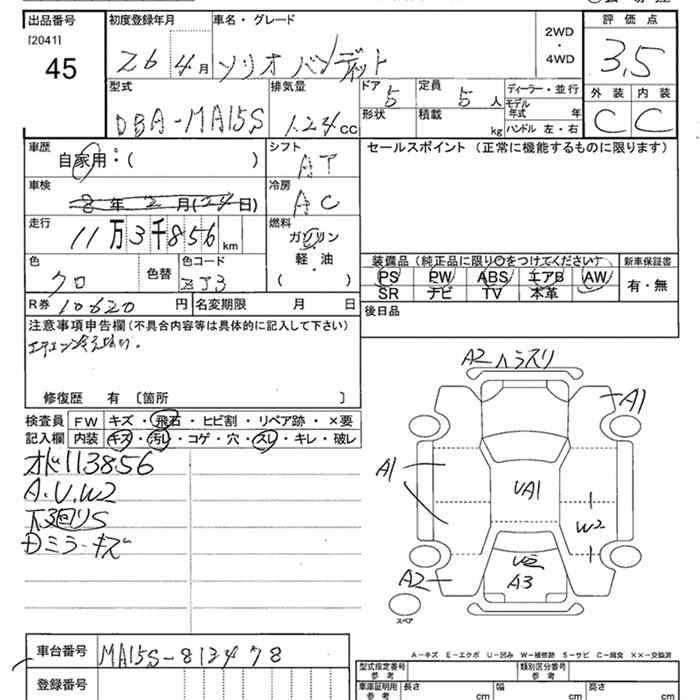 出品番号 初度登録年月 車名・グレード 2WD・4WD 評価点
[2041]
45 26 4月 ソリオバンデット 3.5
型式 排気量 ドア 定員 ディーラー・並行 外装 内装
DBA-MA15S 1.24cc 5 5人 モデル年式 年 C C
形状 積載 kg ハンドル 左・右
車歴 シフト セールスポイント (正常に機能するものに限ります)
自家用:( ) AT
車検 冷房
8年2月(24日) AC
走行 燃料
11万3千856km ガソリン・軽油( )
色 色替 色コード 装備品(純正品に限り○をつけてください) 新車保証書
クロ ZJ3 PS PW ABS エアB AW 有・無
SR ナビ TV 本革
R券 10620円 名変期限 月 日 後日品
注意事項申告欄(不具合内容等は具体的に記入して下さい)
修復歴 有 〔箇所 〕
検査員 FW キズ・飛石・ヒビ割・リペア跡・×要
記入欄 内装 キズ・汚レ・コゲ・穴・スレ・キレ・破レ
オド113856
A.U.W2
下回りS
Dミラーキズ
A2 ハラスリ
A1
A1
UA1
W2
U2
A3
A2
スペア
A-キズ E-エクボ U-凹み W-補修跡 S-サビ C-腐食 ××-交換済
車台番号 MA15S-813478
登録番号
型式指定番号 参考 類別区分番号 参考
車庫証明用 参考 長さ cm 幅 cm 高さ cm